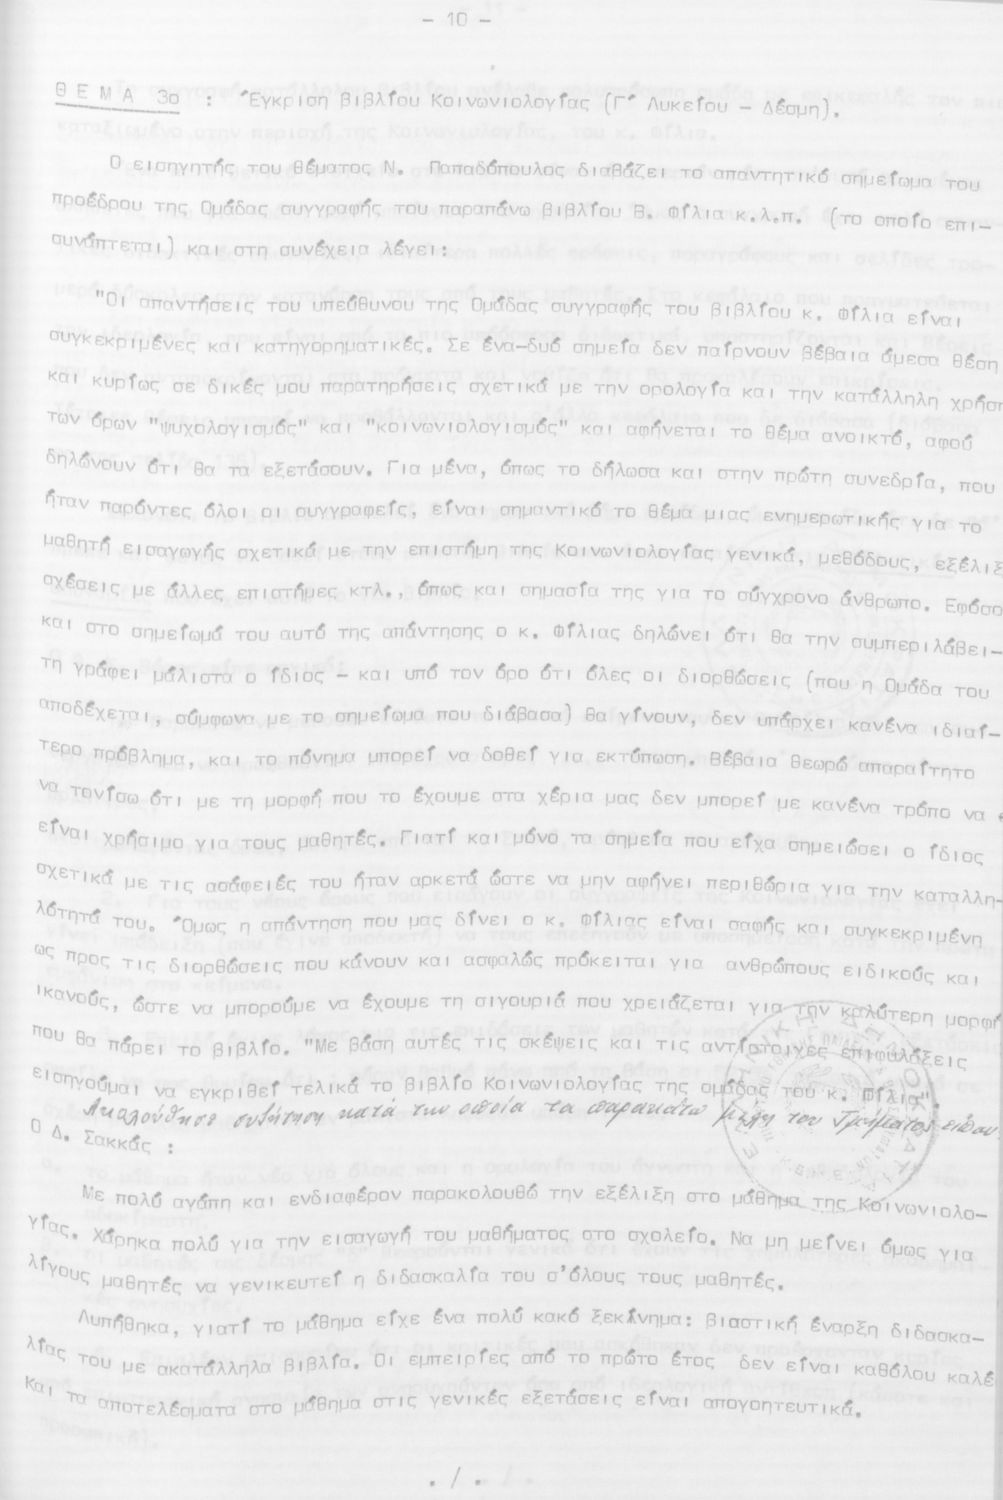 - 10 -
Θ Ε Μ Α 3ο : Έγκριση βιβλίου Κοινωνιολογίας (Γ΄ Λυκείου - Δέσμη).
Ο εισηγητής του θέματος Ν. Παπαδόπουλος διαβάζει το απαντητικό σημείωμα του
προέδρου της Ομάδας συγγραφής του παραπάνω βιβλίου Β. Φίλια κ.λ.π. (το οποίο επι-
συνάπτεται) και στη συνέχεια λέγει:
"Οι απαντήσεις του υπεύθυνου της Ομάδας συγγραφής του βιβλίου κ. Φίλια είναι
συγκεκριμένες και κατηγορηματικές. Σε ένα-δυό σημεία δεν παίρνουν βέβαια άμεσα θέση
και κυρίως σε δικές μου παρατηρήσεις σχετικά με την ορολογία και την κατάλληλη χρήση
των όρων "ψυχολογισμός" και "κοινωνιολογισμός" και αφήνεται το θέμα ανοικτό, αφού
δηλώνουν ότι θα τα εξετάσουν. Για μένα, όπως το δήλωσα και στην πρώτη συνεδρία, που
ήταν παρόντες όλοι οι συγγραφείς, είναι σημαντικό το θέμα μιας ενημερωτικής για το
μαθητή εισαγωγής σχετικά με την επιστήμη της Κοινωνιολογίας γενικά, μεθόδους, εξέλιξ
σχέσεις με άλλες επιστήμες κτλ., όπως και σημασία της για το σύγχρονο άνθρωπο. Εφόσο
και στο σημείωμά του αυτό της απάντησης ο κ. Φίλιας δηλώνει ότι θα την συμπεριλάβει-
τη γράφει μάλιστα ο ίδιος - και υπό τον όρο ότι όλες οι διορθώσεις (που η Ομάδα του
αποδέχεται, σύμφωνα με το σημείωμα που διάβασα) θα γίνουν, δεν υπάρχει κανένα ιδιαί-
τερο πρόβλημα, και το πόνημα μπορεί να δοθεί για εκτύπωση. Βέβαια θεωρώ απαραίτητο
να τονίσω ότι με τη μορφή που το έχουμε στα χέρια μας δεν μπορεί με κανένα τρόπο να
είναι χρήσιμο για τους μαθητές. Γιατί και μόνο τα σημεία που είχα σημειώσει ο ίδιος
σχετικά με τις ασάφειές του ήταν αρκετά ώστε να μην αφήνει περιθώρια για την καταλλη-
λότητά του. Όμως η απάντηση που μας δίνει ο κ. Φίλιας είναι σαφής και συγκεκριμένη
ως προς τις διορθώσεις που κάνουν και ασφαλώς πρόκειται για ανθρώπους ειδικούς και
ικανούς, ώστε να μπορούμε να έχουμε τη σιγουριά που χρειάζεται για την καλύτερη μορφή
που θα πάρει το βιβλίο. "Με βάση αυτές τις σκέψεις και τις αντίστοιχες επιφυλάξεις
εισηγούμαι να εγκριθεί τελικά το βιβλίο Κοινωνιολογίας της ομάδας του κ. Φίλια".
Ακολούθησε συζήτηση κατά την οποία τα παρακάτω μέλη του Τμήματος είπαν.
Ο Δ. Σακκάς :
Με πολύ αγάπη και ενδιαφέρον παρακολουθώ την εξέλιξη στο μάθημα της Κοινωνιολο-
γίας. Χάρηκα πολύ για την εισαγωγή του μαθήματος στο σχολείο. Να μη μείνει όμως για
λίγους μαθητές να γενικευτεί η διδασκαλία του σ'όλους τους μαθητές.
Λυπήθηκα, γιατί το μάθημα είχε ένα πολύ κακό ξεκίνημα: βιαστική έναρξη διδασκα-
λίας του με ακατάλληλα βιβλία. Οι εμπειρίες από το πρώτο έτος δεν είναι καθόλου καλέ
Και τα αποτελέσματα στο μάθημα στις γενικές εξετάσεις είναι απογοητευτικά.
. / .